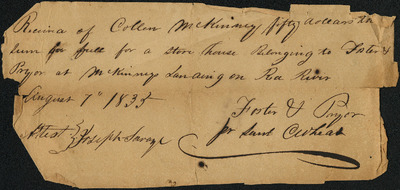 Recived of Collin McKinney fifty dollars the
sum in full for a store house Belonging to Foster &
Pryor at McKinneys Landing on Red River
August 7th 1835
Foster & Pryor
Attest } Joseph Savage
pr